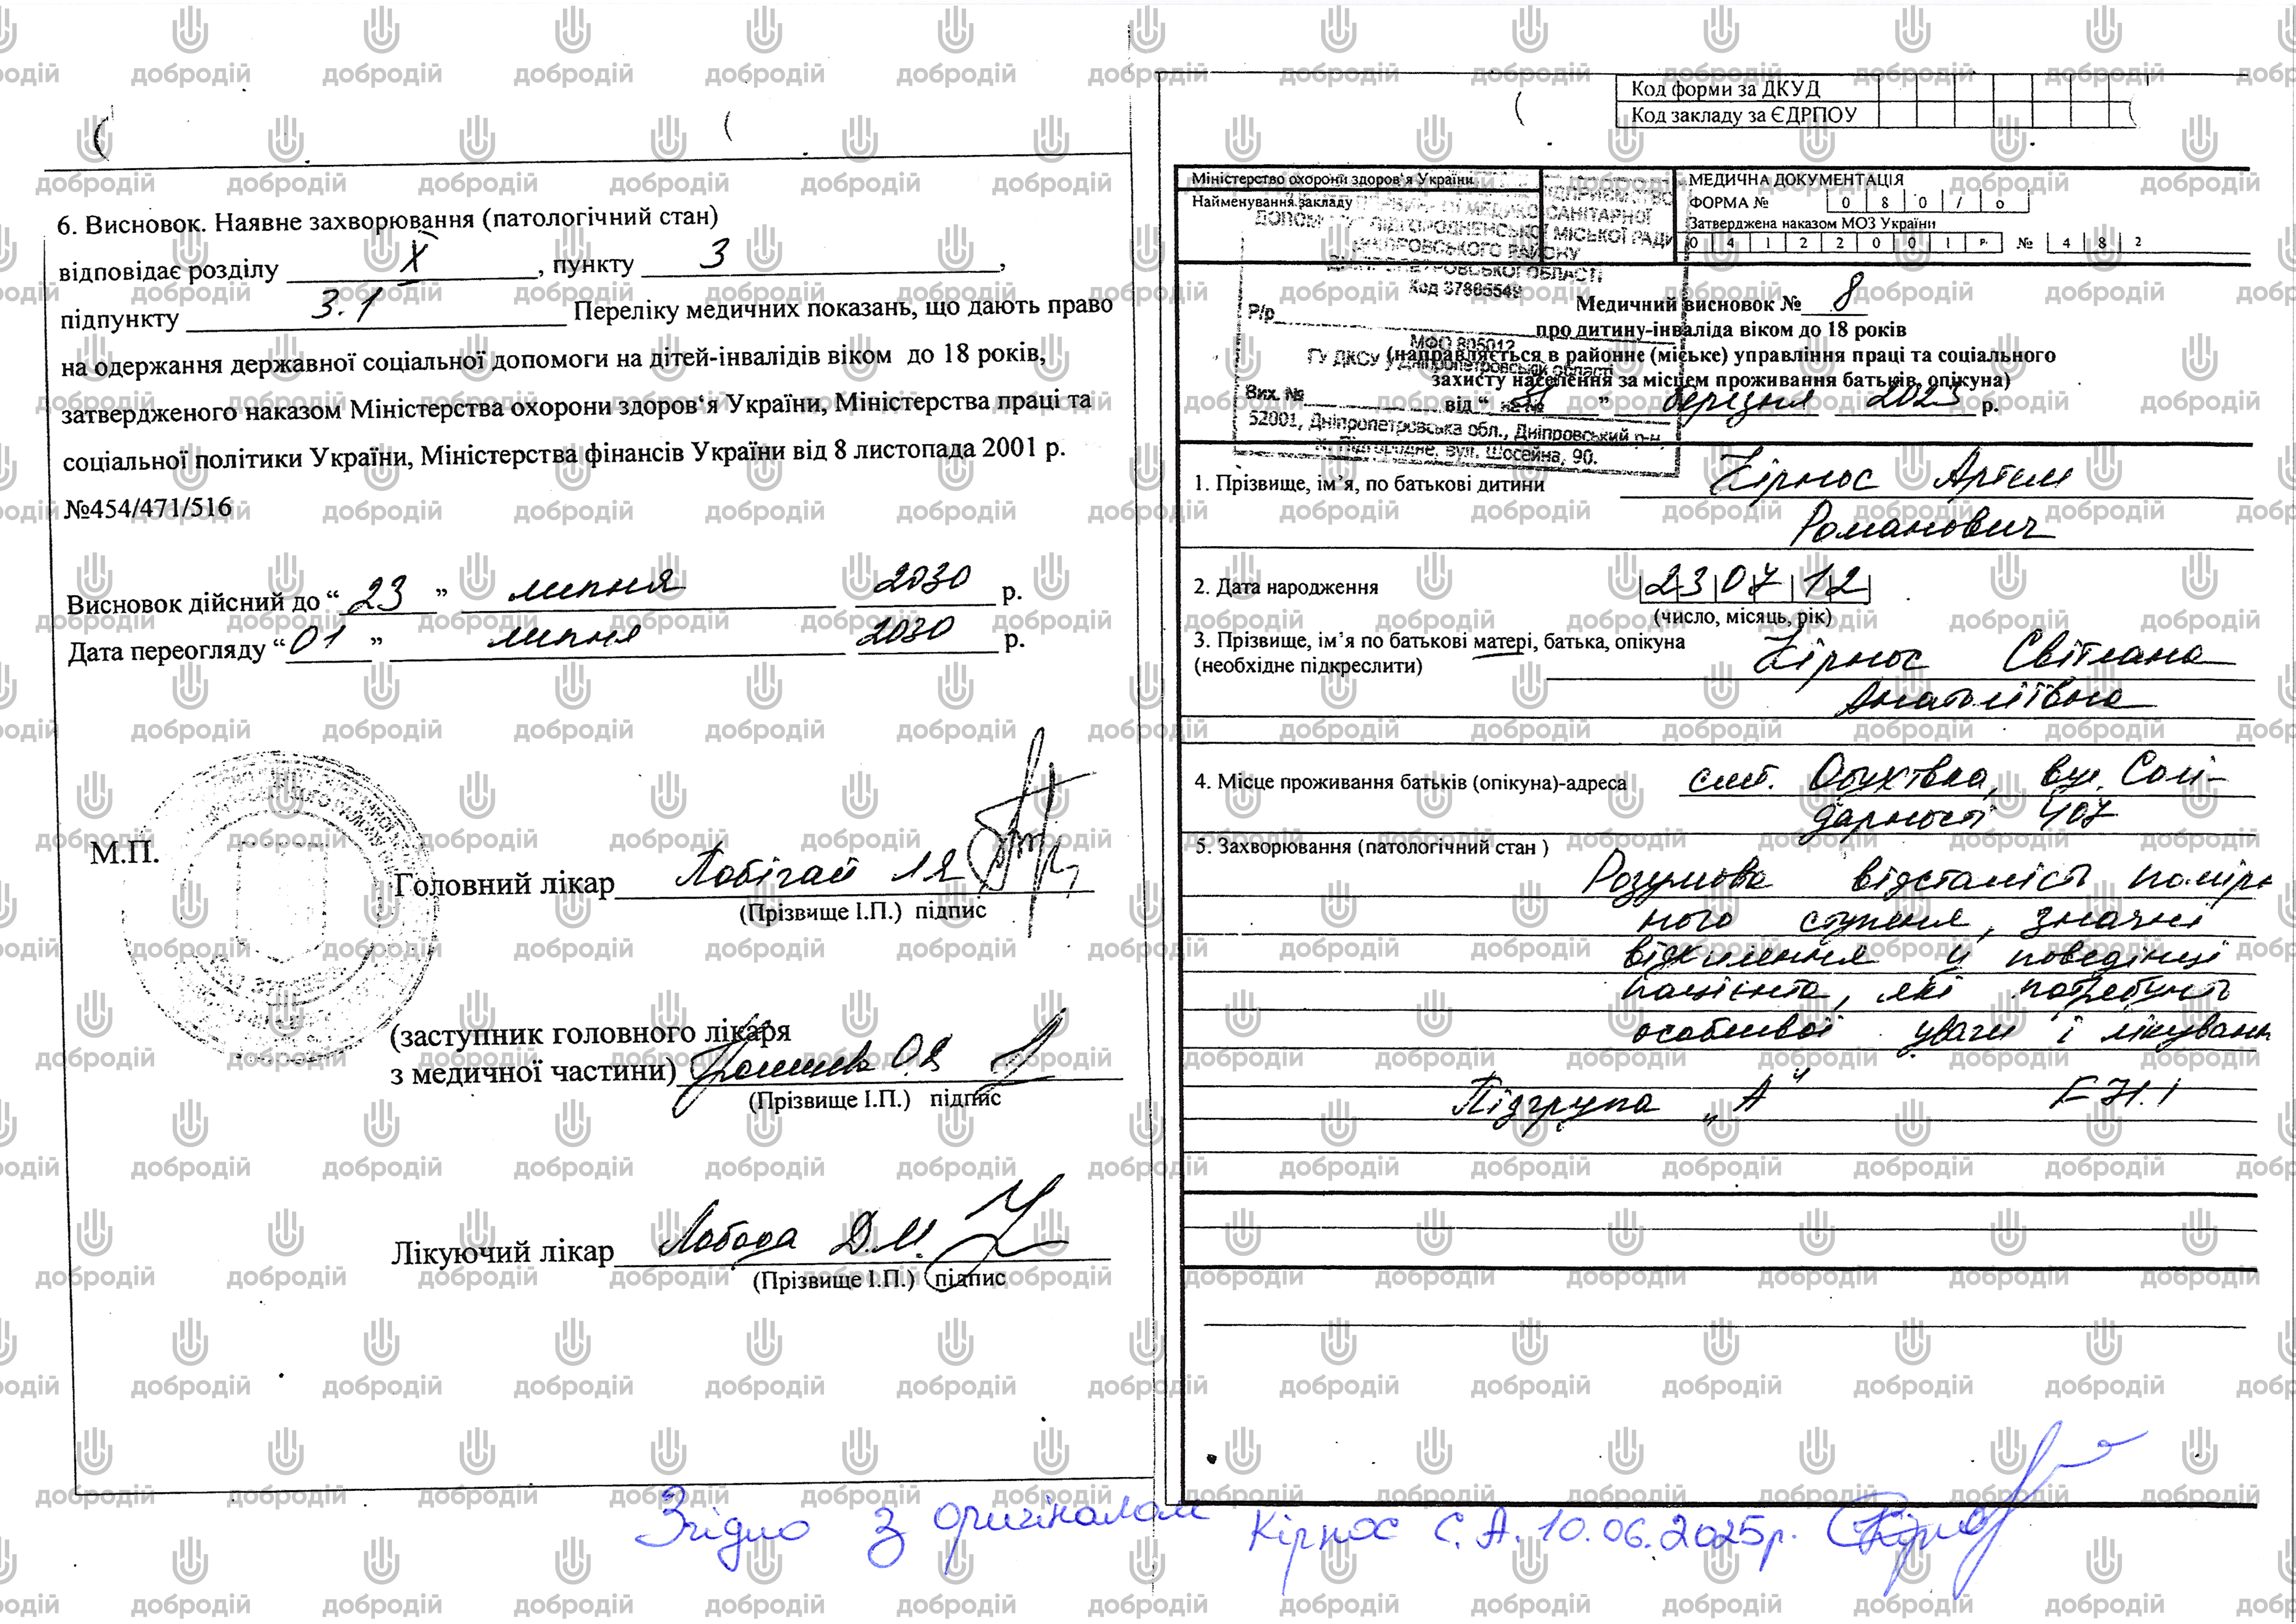 6. Висновок. Наявне захворювання (патологічний стан)
відповідає розділу X, пункту 3,
підпункту 3.1 Переліку медичних показань, що дають право
на одержання державної соціальної допомоги на дітей-інвалідів віком до 18 років,
затвердженого наказом Міністерства охорони здоров‘я України, Міністерства праці та
соціальної політики України, Міністерства фінансів України від 8 листопада 2001 р.
№454/471/516
Висновок дійсний до “ 23 ” липня 2030 р.
Дата переогляду “ 01 ” липня 2030 р.
М.П.
Головний лікар Побігай
(Прізвище І.П.) підпис
(заступник головного лікаря
з медичної частини)
(Прізвище І.П.) підпис
Лікуючий лікар Лобода Д.М.
(Прізвище І.П.) підпис
Код форми за ДКУД
Код закладу за ЄДРПОУ
Міністерство охорони здоров‘я України
Найменування закладу
МЕДИЧНА ДОКУМЕНТАЦІЯ
ФОРМА № 0 8 0 / о
Затверджена наказом МОЗ України
0 4 1 2 2 0 0 1 р. № 4 8 2
МЕДИКО-САНІТАРНОЇ
ДОПОМОГИ ПІДГОРОДНЕНСЬКОЇ МІСЬКОЇ РАДИ
ДНІПРОВСЬКОГО РАЙОНУ
ДНІПРОПЕТРОВСЬКОЇ ОБЛАСТІ
Код 37865549
Р/р
МФО 805012
ГУ ДКСУ у Дніпропетровській області
Вих. №
52001, Дніпропетровська обл., Дніпровський р-н,
м. Підгородне, вул. Шосейна, 90.
Медичний висновок № 8
про дитину-інваліда віком до 18 років
(направляється в районне (міське) управління праці та соціального
захисту населення за місцем проживання батьків, опікуна)
від “ ” березня 2023 р.
1. Прізвище, ім’я, по батькові дитини Кірнос Артем
Романович
2. Дата народження 23 07 12
(число, місяць, рік)
3. Прізвище, ім’я по батькові матері, батька, опікуна
(необхідне підкреслити) Кірнос Світлана
Анатоліївна
4. Місце проживання батьків (опікуна)-адреса смт. Обухівка, вул. Солі-
дарності 407
5. Захворювання (патологічний стан )
Розумова відсталість помір-
ного ступеня, значні
відхилення у поведінці
пацієнта, які потребують
особливої уваги і лікування
Підгрупа „А“ F 71.1
Згідно з оригіналом Кірнос С.А. 10.06.2025р.
добродій